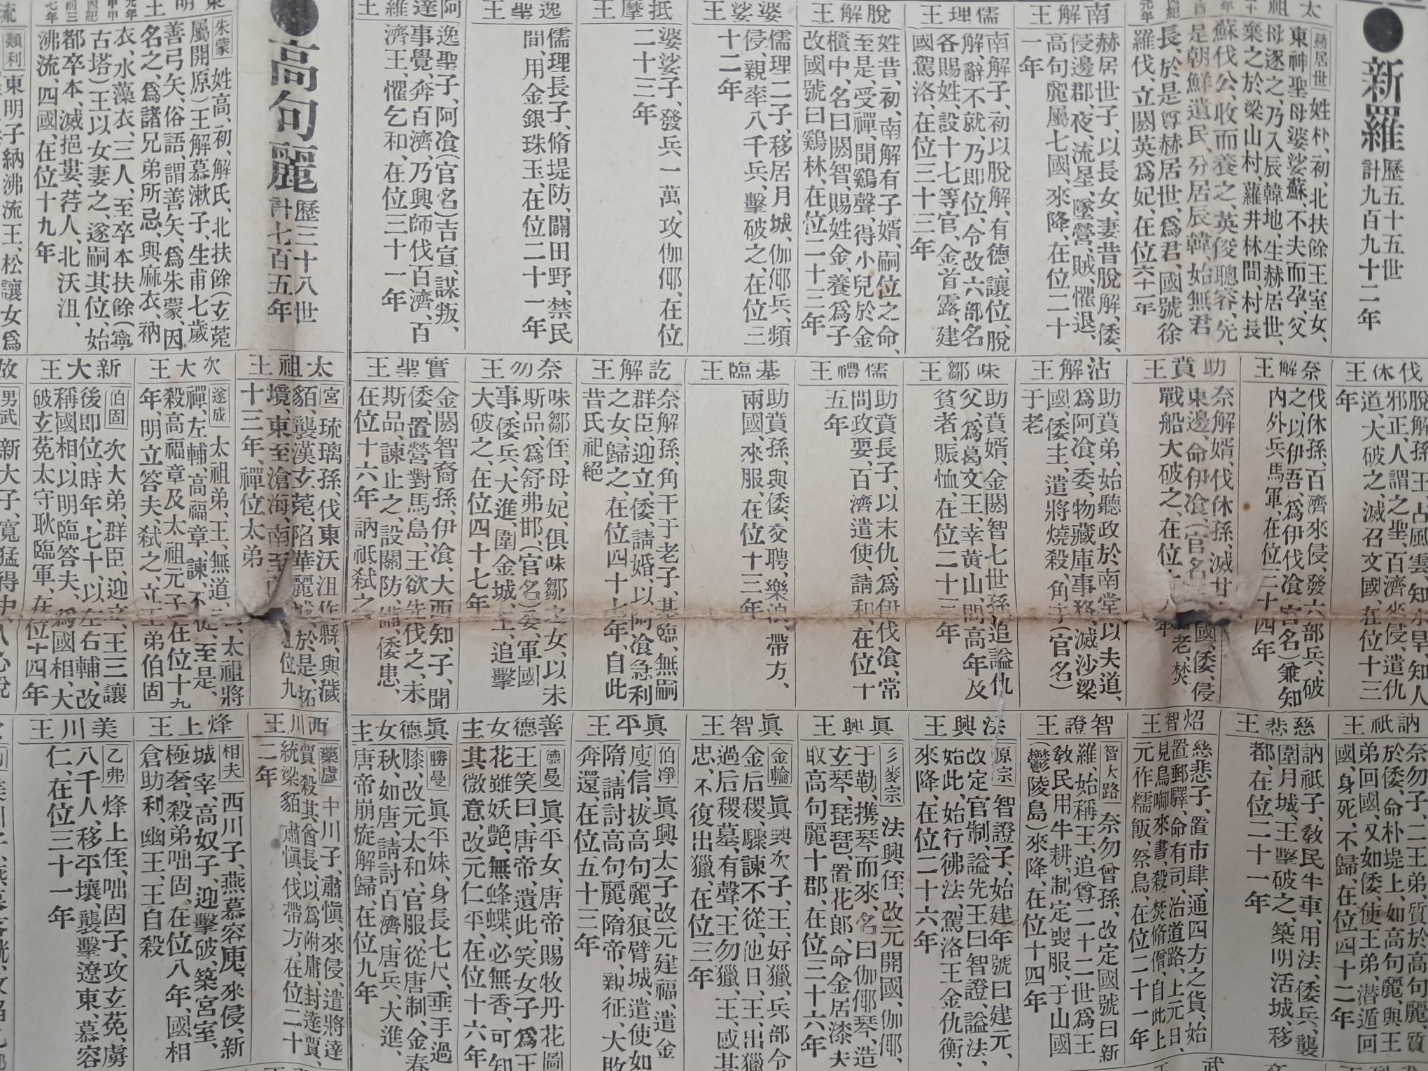 新羅
歷五十五世
計九百九十二年
太祖
赫居世
姓朴、初、北扶餘王室女、
東神聖母婆娑蘇、不夫而孕、父
母逐之、乃入辰韓地、生赫居世、
棄之於梁山村、蘿井林間、村長
蘇伐公、收而養之、英俊聰容、先
是朝鮮遺民、分居辰韓、始無君
長、於是尊赫居世、爲君、國號徐
羅伐、立閼英爲妃、在位六十一年
南解王
赫居世子、以長女妻昔脫解、倭、
侵邊郡、夜、流星、墜營、賊、懼退、
高句麗屬七國、來降、在位二十
一年
儒理王
南解子、初以脫解、有德、讓位、脫
解、辭不就、乃即位、令改六部名
各賜姓、設十七等官、金首露、建
國駕洛、在位三十三年
脫解王
姓昔、初、南解有子婿、嗣位之命、
至是、受禪、聞鷄聲、得小兒於金
櫃中、名曰閼智、賜姓金、養爲子
改國號曰鷄林、在位二十三年
婆娑王
儒理二子、移居月城、伽倻兵、頻
侵、親率八千兵、擊破之、在位三
十二年
抵摩王
婆娑子、發兵一萬、攻伽倻、在位
二十三年
逸聖王
儒理長子、脩堤防、闢田野、禁民
間用金銀珠玉、在位二十一年
阿達羅王
逸聖子、阿飡(官名)吉宣、謀叛、
事覺、奔百濟、乃興師伐百濟、百
濟王、懼乞和、在位三十一年
高句麗
歷三十八世
計七百五年
東明王
朱蒙
姓高、初、解氏、北扶餘(玄菟
屬開原)王解慕漱子、生甫七歲
善弓矢、俗語謂善矢、爲朱蒙、因
名之、爲諸兄弟所忌、與麻衣、衲
衣、水藻衣、三人、至卒本扶餘(寧
古塔)王以女妻之、遂嗣其位、始
都卒本、滅挹婁、荇人、北沃沮、
沸流、四國、在位十九年
類利
東明子、納沸流王、松讓女爲
伐休王
脫解孫、王、占風雲、知水旱、知人
邪正、人謂之聖、百濟來侵、遣仇
道、大破之、滅召文國、在位十三
年
奈解王
伐休孫、百濟來侵、發六部兵、破
之、以伊吾、爲伊伐飡(官名)兼知
內外兵馬軍、在位三十四年
助賁王
奈解婿、伐休孫、滅甘
東邊、命伊飡(官名
戰船大破之、在位
沾解王
助賁弟、始聽政於南堂、以夫道、
爲阿飡、委物藏庫事務、滅沙梁
國、倭主、遣將燒殺、角干(官名)
于老
味鄒王
助賁婿、金閼智七世孫、追謚仇
父、爲葛文王、幸黃山、問高年及
貧者、賑恤、在位二十三年
儒禮王
助賁長子、以末仇、爲伊伐飡、常
問政要、百濟遣使、請和、在位十
五年
基臨王
助賁孫、與倭、交聘、樂浪、帶方、
兩國、來服、在位十三年
訖解王
奈解孫、角干于老子、基臨、無嗣
群臣、迎立、倭、請婚、以阿飡急利
之女、歸之、在位四十七年、自此
昔氏祀絕
奈勿王
味鄒侄、母、妃、俱味鄒之女、以末
斯品、爲舒弗邯(官名)委、軍國
事、倭兵、大進、圍金城、王、追擊
大破之、在位四十七年
實聖王
金閼智裔孫、伊飡、大西知、子、聞
倭、置營對馬島、王欲先伐之、未
斯品、諫止之、設關防、備倭患、
在位十六年、訥祗弒之
太祖王
宮
琉璃孫、伐東沃沮、作縣、與濊
貊、襲漢玄菟、陷華麗城、於是、拓
境、東至滄海、南至
十三年、禪位太弟
次大王
遂成
太祖弟、王、無道、三、太祖將
禪、左輔、高福章、諫、不從、至是、
殺高福章、及太祖元子、在位十九
年、明立答夫、弒之、立王弟伯固
新大王
伯固
次大弟、群臣、迎立、王三讓
後即位、時年、七十、以左右輔、改
稱國相、以明臨答夫、爲國相、大
破玄菟太守耿臨軍、在位十四年
男武
新大子、寬猛得中、人心悅
訥祇王
奈勿子、王二王弟、質於高句麗、質
於倭、命朴堤上、如高句麗、與王
弟回國、又如倭、使王弟、潛遁回
國、身死、不歸、在位四十二年
慈悲王
訥祇子、敎民牛車用法、倭兵、襲
圍月城、王擊破之、築明活城、移
都、在位二十一年
炤智王
慈悲子、置市肆、通四方之貨、始
置郵驛、命有司、治道路、上元日、
見烏啣來書、殺焚脩僧、自此上
元作糯飯、祭烏、在位二十一年
智證王
智大路
奈勿曾孫、改定國號曰新
羅、始稱王、追尊二十二世爲王
敎民用牛耕、制定喪服、于山國
(鬱陵島)來降、在位十四年
法興王
原宗
智證子、始建年號曰建元、
改定官制、謚先王曰智證、謚法、
始此、始行彿法、駕洛王金仇衡、
來降、在位二十六年
眞興王
彡麥宗
法興侄、改元開國、伽倻、
于勒、携琴而來、名曰伽倻琴、造
玄琴、琵琶、置花郎、命金居漆夫
取高句麗十郡、在位三十六年
眞智王
金輪
眞興次子、王、好獵、兵部令
金后稷、驟諫不從、他日、王、出獵
過后稷墓、有聲、王勿獵、王、感其
忠、不復出獵、在位三年
眞平王
伯淨
眞興太子、改元建福、遣金
庾信、拔高句麗狼臂城、遣使如
隋、請討高句麗、隋帝、親征、大敗
奔還、在位五十三年
善德女主
德曼
眞平女、唐帝、賜牧丹花圖
王笑曰、唐帝、遺此、笑女子爲王
花雖妖艶、無蜂蝶、必無香、可知
其微意、改元仁平、在位十六年
眞德女主
勝曼
眞平妹、身長七尺、垂手過
膝、改元太和、官服、從唐制、金春
秋、如唐、請討百濟、唐兵、大進、
唐帝崩、旋解歸、在位九年
西川王
藥盧
中川子、肅愼、來侵、遣將達
賈、殺其酋長、以爲附庸、封達賈、
統梁貊、肅愼、伐帶方、在位二十
二年
烽上王
相夫
西川子、燕慕容廆、來侵、新
城宰、高奴子、迎擊破、築宮室、
極奢、殺弟咄固、在位八年、國相
倉助利、幽王、王自殺
美川王
乙弗
烽上侄、咄固子、攻玄菟、虜
八千人、移平壤、襲擊遼東、慕容
仁、在位三十一年